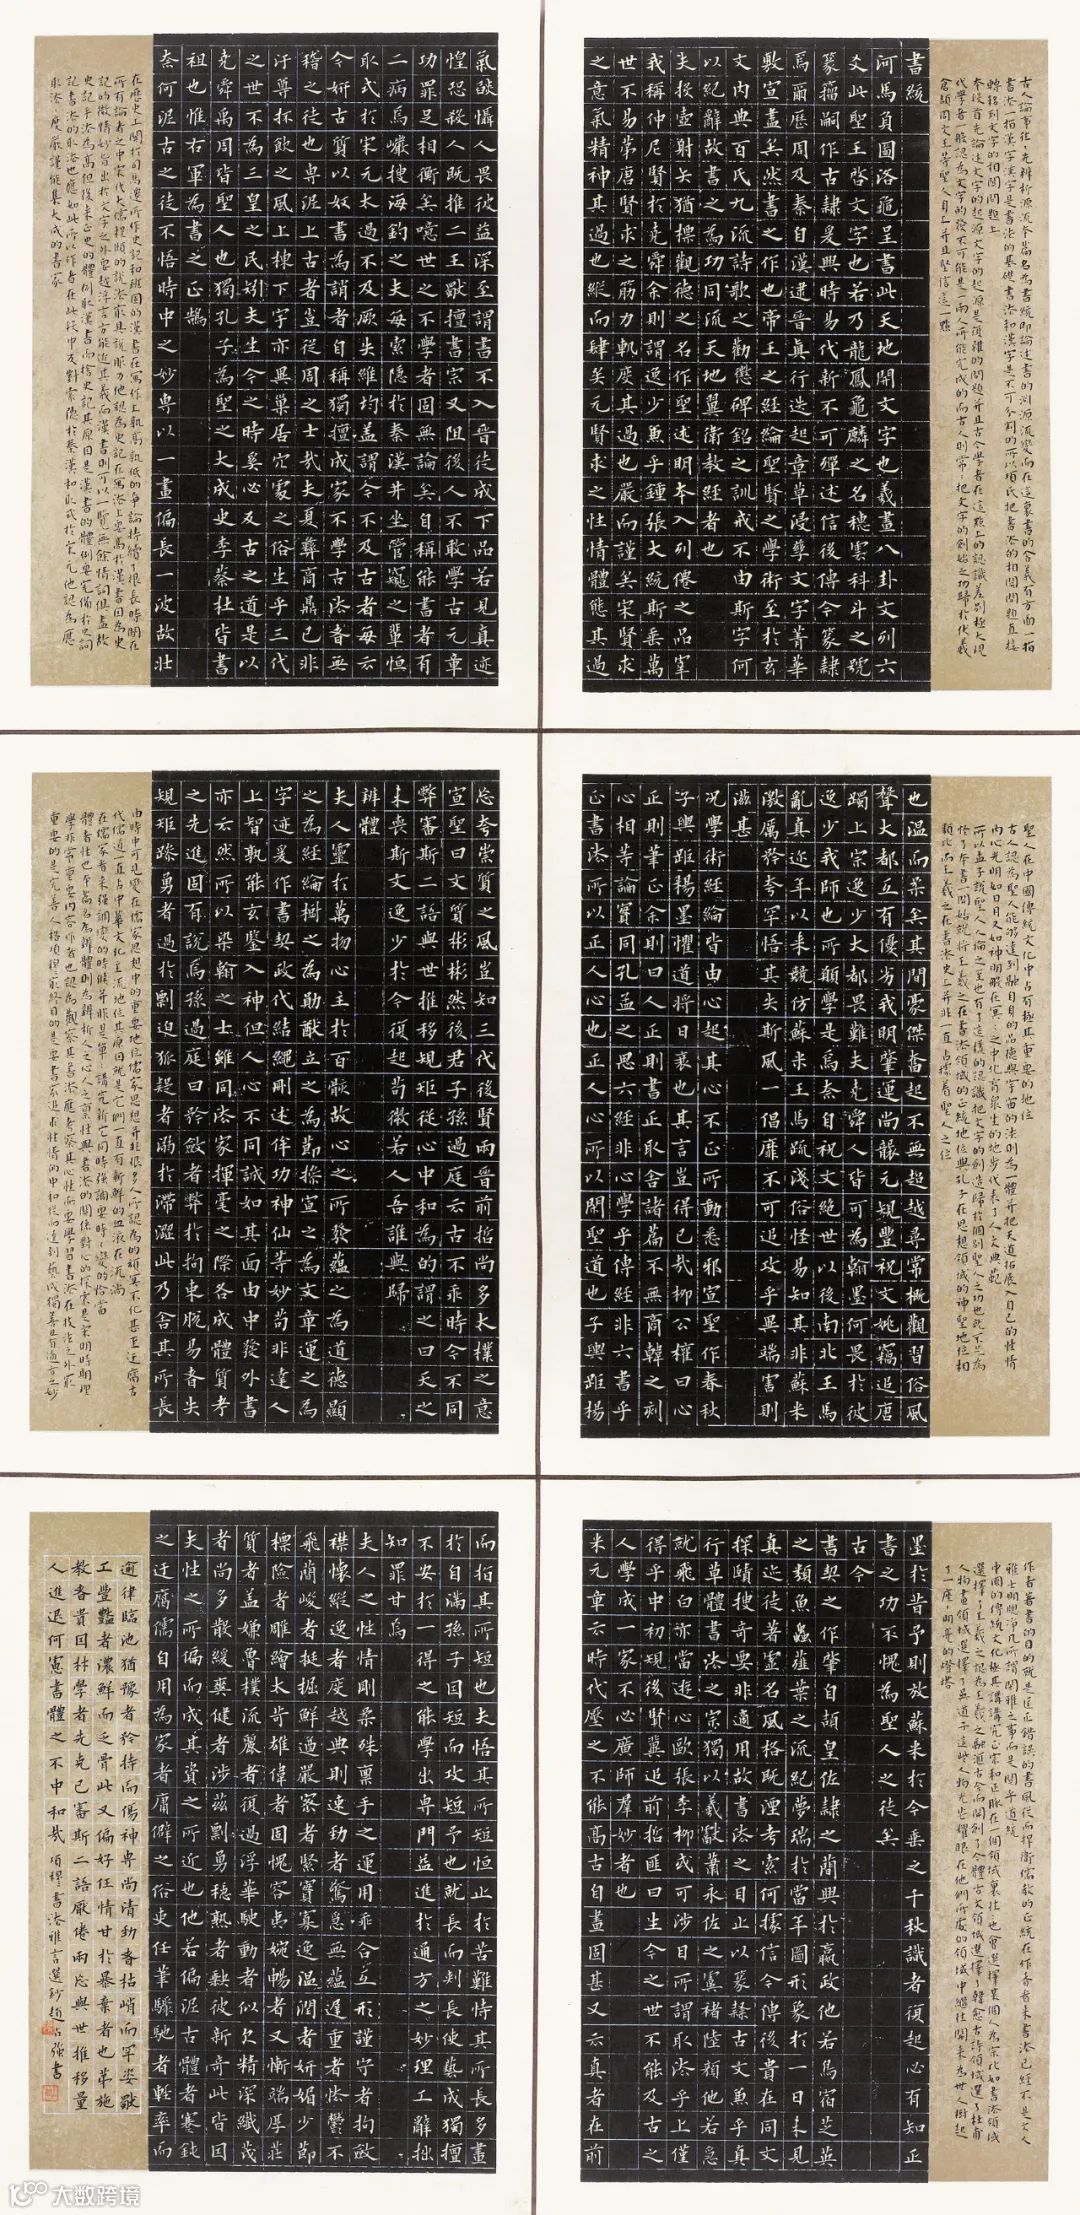 古人論事往往先辨析源流本篇名為書統即論述書的淵源流變而在這裏書的含義有方面一指
書法一指漢字漢字是書法的基礎書法和漢字是不可分割的所以項氏把書法的相關問題直接
轉移到文字的相關問題上
本段首先論述文字的起源文字的起源是很難的問題并且古今學者在這點上的認識差别極大現
代學者一般認為文字的發不可能是一兩人所能完成的而古人則常把文字的創始之功歸於伏羲
倉頡周文王等聖人身上并且堅信這一點
書統
河馬負圖洛龜呈書此天地開文字也羲畫八卦文列六
爻此聖王啓文字也若乃龍鳳龜麟之名穗雲科斗之號
篆籀嗣作古隸爰興時易代新不可殫述信後傳今篆隸
焉爾歷周及秦自漢逮晉真行迭起章草浸孳文字菁華
敷宣盡矣然書之作也帝王之經綸聖賢之學術至於玄
文內典百氏九流詩歌之勸懲碑銘之訓戒不由斯字何
以紀辭故書之為功同流天地翼衛教經者也
夫投壺射矢猶標觀德之名作聖述明本入列僊之品宰
我稱仲尼賢於堯舜余則謂逸少兼乎鍾張大統斯垂萬
世不易第唐賢求之筋力軌度其過也嚴而謹矣宋賢求
之意氣精神其過也縱而肆矣元賢求之性情體態其過
聖人在中國傳統文化中占有極其重要的地位
古人認為聖人能够達到融自身的品德與宇宙的法則為一體并把天道拓展入自己的性情
內心光明如日月又如神明般在冥冥之中化育衆生的地步代表了人文典範
所以孟子說聖人人倫之至也有了這樣的認識把文字的創造歸於個別聖人之功也就不足為
怪了本書一開始就將王羲之在書法領域的正統地位與孔子在思想領域的神聖地位相
類比而王羲之在書法史上并非一直占據着聖人之位
也溫而柔矣其間豪傑奮起不無超越尋常概觀習俗風
聲大都互有優劣我明肇運尚襲元規豐祝文姚竊追唐
躅上宗逸少大都畏難夫堯舜人皆可為翰墨何畏於彼
逸少我師也所願學是焉奈自祝文絕世以後南北王馬
亂真邇年以來競仿蘇米王馬疏淺俗怪易知其非蘇米
激厲矜夸罕悟其失斯風一倡靡不可追攻乎異端害則
滋甚
況學術經綸皆由心起其心不正所動悉邪宣聖作春秋
子輿距楊墨懼道將日衰也其言豈得已哉柳公權曰心
正則筆正余則曰人正則書正取舍諸篇不無商韓之刻
心相等論實同孔孟之思六經非心學乎傳經非六書乎
正書法所以正人心也正人心所以閑聖道也子輿距楊
作者著書的目的就是匡正錯誤的書風從而捍衛儒教的正統在作者看來書法已經不是文人
雅士明牕淨几所謂閑雅之事而是關乎道統
中國的傳統文化極其講究正宗和正脉在一個領域裏往往也會選擇某個人為宗比如書法領域
選擇了王羲之認為王羲之融匯古今而開創了今體古文領域選擇了韓愈古詩領域選了杜甫
人物畫領域選擇了吳道子這些人物光芒耀眼在他們所處的領域中繼往開來為世人樹起
了一座座明亮的燈塔
墨於昔予則放蘇米於今垂之千秋識者復起必有知正
書之功不愧為聖人之徒矣
古今
書契之作肇自頡皇佐隸之簡興於嬴政他若鳥宿芝英
之類魚蟲薤葉之流紀夢瑞於當年圖形象於一日未見
真迹徒著靈名風格既湮考索何據信今傳後貴在同文
探賾搜奇要非適用故書法之目止以篆隸古文兼乎真
行草體書法之宗獨以羲獻蕭永佐之虞褚陸顏他若急
就飛白亦當游心歐張李柳或可涉目所謂取法乎上僅
得乎中初規後賢冀追前哲匪曰生今之世不能及古之
人學成一家不必廣師羣妙者也
米元章云時代壓之不能高古自畫固甚又云真者在前
氣焰懾人畏彼益深至謂書不入晉徒成下品若見真迹
惶恐殺人既推二王獻擅書宗又阻後人不敢學古元章
功罪足相衡矣噫世之不學者固無論矣自稱能書者有
二病焉巖搜海釣之夫每索隱於秦漢井坐管窺之輩恒
取式於宋元太過不及厥失維均蓋謂今不及古者每云
今妍古質以奴書為誚者自稱獨擅成家不學古法者無
稽之徒也專泥上古者豈從周之士哉夫夏彝商鼎已非
汙尊抔飲之風上棟下宇亦異巢居穴處之俗生乎三代
之世不為三皇之民矧夫生今之時奚必及古之道是以
堯舜禹周皆聖人也獨孔子為聖之大成史李蔡杜皆書
祖也惟右軍為書之正鵠
奈何泥古之徒不悟時中之妙專以一畫偏長一波故壯
在歷史上關於司馬遷所作史記和班固的漢書在寫作上孰高孰低的爭論持續了很長時間在
所有論者之中宋代大儒程頤的說法最具說服力他認為史記在寫法上要高於漢書因為史
記的微情妙旨出於文字之外要超浮言方能近其義而漢書則可以一覽無餘情詞俱盡故
史記手法為高但後來正史的體例取漢書而捨史記其原因是漢書的體例要完備於史詞
記書法的取法也應如此所以作者在此段中反對索隱於秦漢和取式於宋元他認為應
取法度嚴謹能集大成的書家
忿夸崇質之風豈知三代後賢兩晉前哲尚多太樸之意
宣聖曰文質彬彬然後君子孫過庭云古不乖時今不同
弊審斯二語與世推移規矩從心中和為的謂之曰天之
未喪斯文逸少於今復起苟微若人吾誰與歸
辨體
夫人靈於萬物心主於百骸故心之所發蘊之為道德顯
之為經綸樹之為勛猷立之為節操宣之為文章運之為
字迹爰作書契政代結繩刪述侔功神仙等妙苟非達人
上智孰能玄鑒入神但人心不同誠如其面由中發外書
亦云然所以染翰之士雖同法家揮毫之際各成體質考
之先進固有說焉孫過庭曰矜斂者弊於拘束脱易者失
規矩躁勇者過於剽迫狐疑者溺於滯澀此乃舍其所長
由時中可見變在儒家思想中的重要地位儒家思想并非很多人所認為的頑冥不化甚至迂腐古
代儒道一直占中華文化主流地位其原因就是它們一直有新鮮的血液在流淌
在儒家看來强調變的時候并非是單單講究新它同時強調要時時變的恰當
體者性也本篇名為辨體則為辨析人之心人之稟性與書法的關係對心的探索是宋明時期理
學非常重要內容作者也認為觀察其書法應考察其心性而要學習書法在技法之外最
重要的是完善人格項穆最終目的是要書家追求性情的中和從而達到藝成獨善且有通方之妙
而拍其所短也夫悟其所短恒止於苦難恃其所長多畫
於自滿孫子因短而攻短予也就長而刾長使藝成獨擅
不安於一得之能學出專門益進於通方之妙理工辭拙
知罪甘焉
夫人之性情剛柔殊稟手之運用乖合互形謹守者拘斂
襟懷縱逸者度越典則速勁者驚急無蘊遲重者怯鬱不
飛簡峻者挺掘鮮遒嚴密者緊實寡逸溫潤者妍媚少節
標險者雕繪太苛雄偉者固愧容夷婉暢者又慚端厚莊
質者蓋嫌魯樸流麗者復過浮華駛動者似欠精深纖茂
者尚多散緩爽健者涉茲剽勇穩熟者缺彼新奇此皆因
夫性之所偏而成其資之所近也他若偏泥古體者蹇鈍
之迂腐儒自用為家者庸僻之俗吏任筆驟馳者輕率而
逾律臨池猶豫者矜持而傷神專尚清勁者枯峭而罕姿獻
工豐豔者濃鮮而乏骨此又偏好任情甘於暴棄者也第施
教者貴因材學者先克己審斯二語厭倦兩忘與世推移量
人進退何憲書體之不中和哉 項穆書法雅言選鈔趙占强書
大数跨境